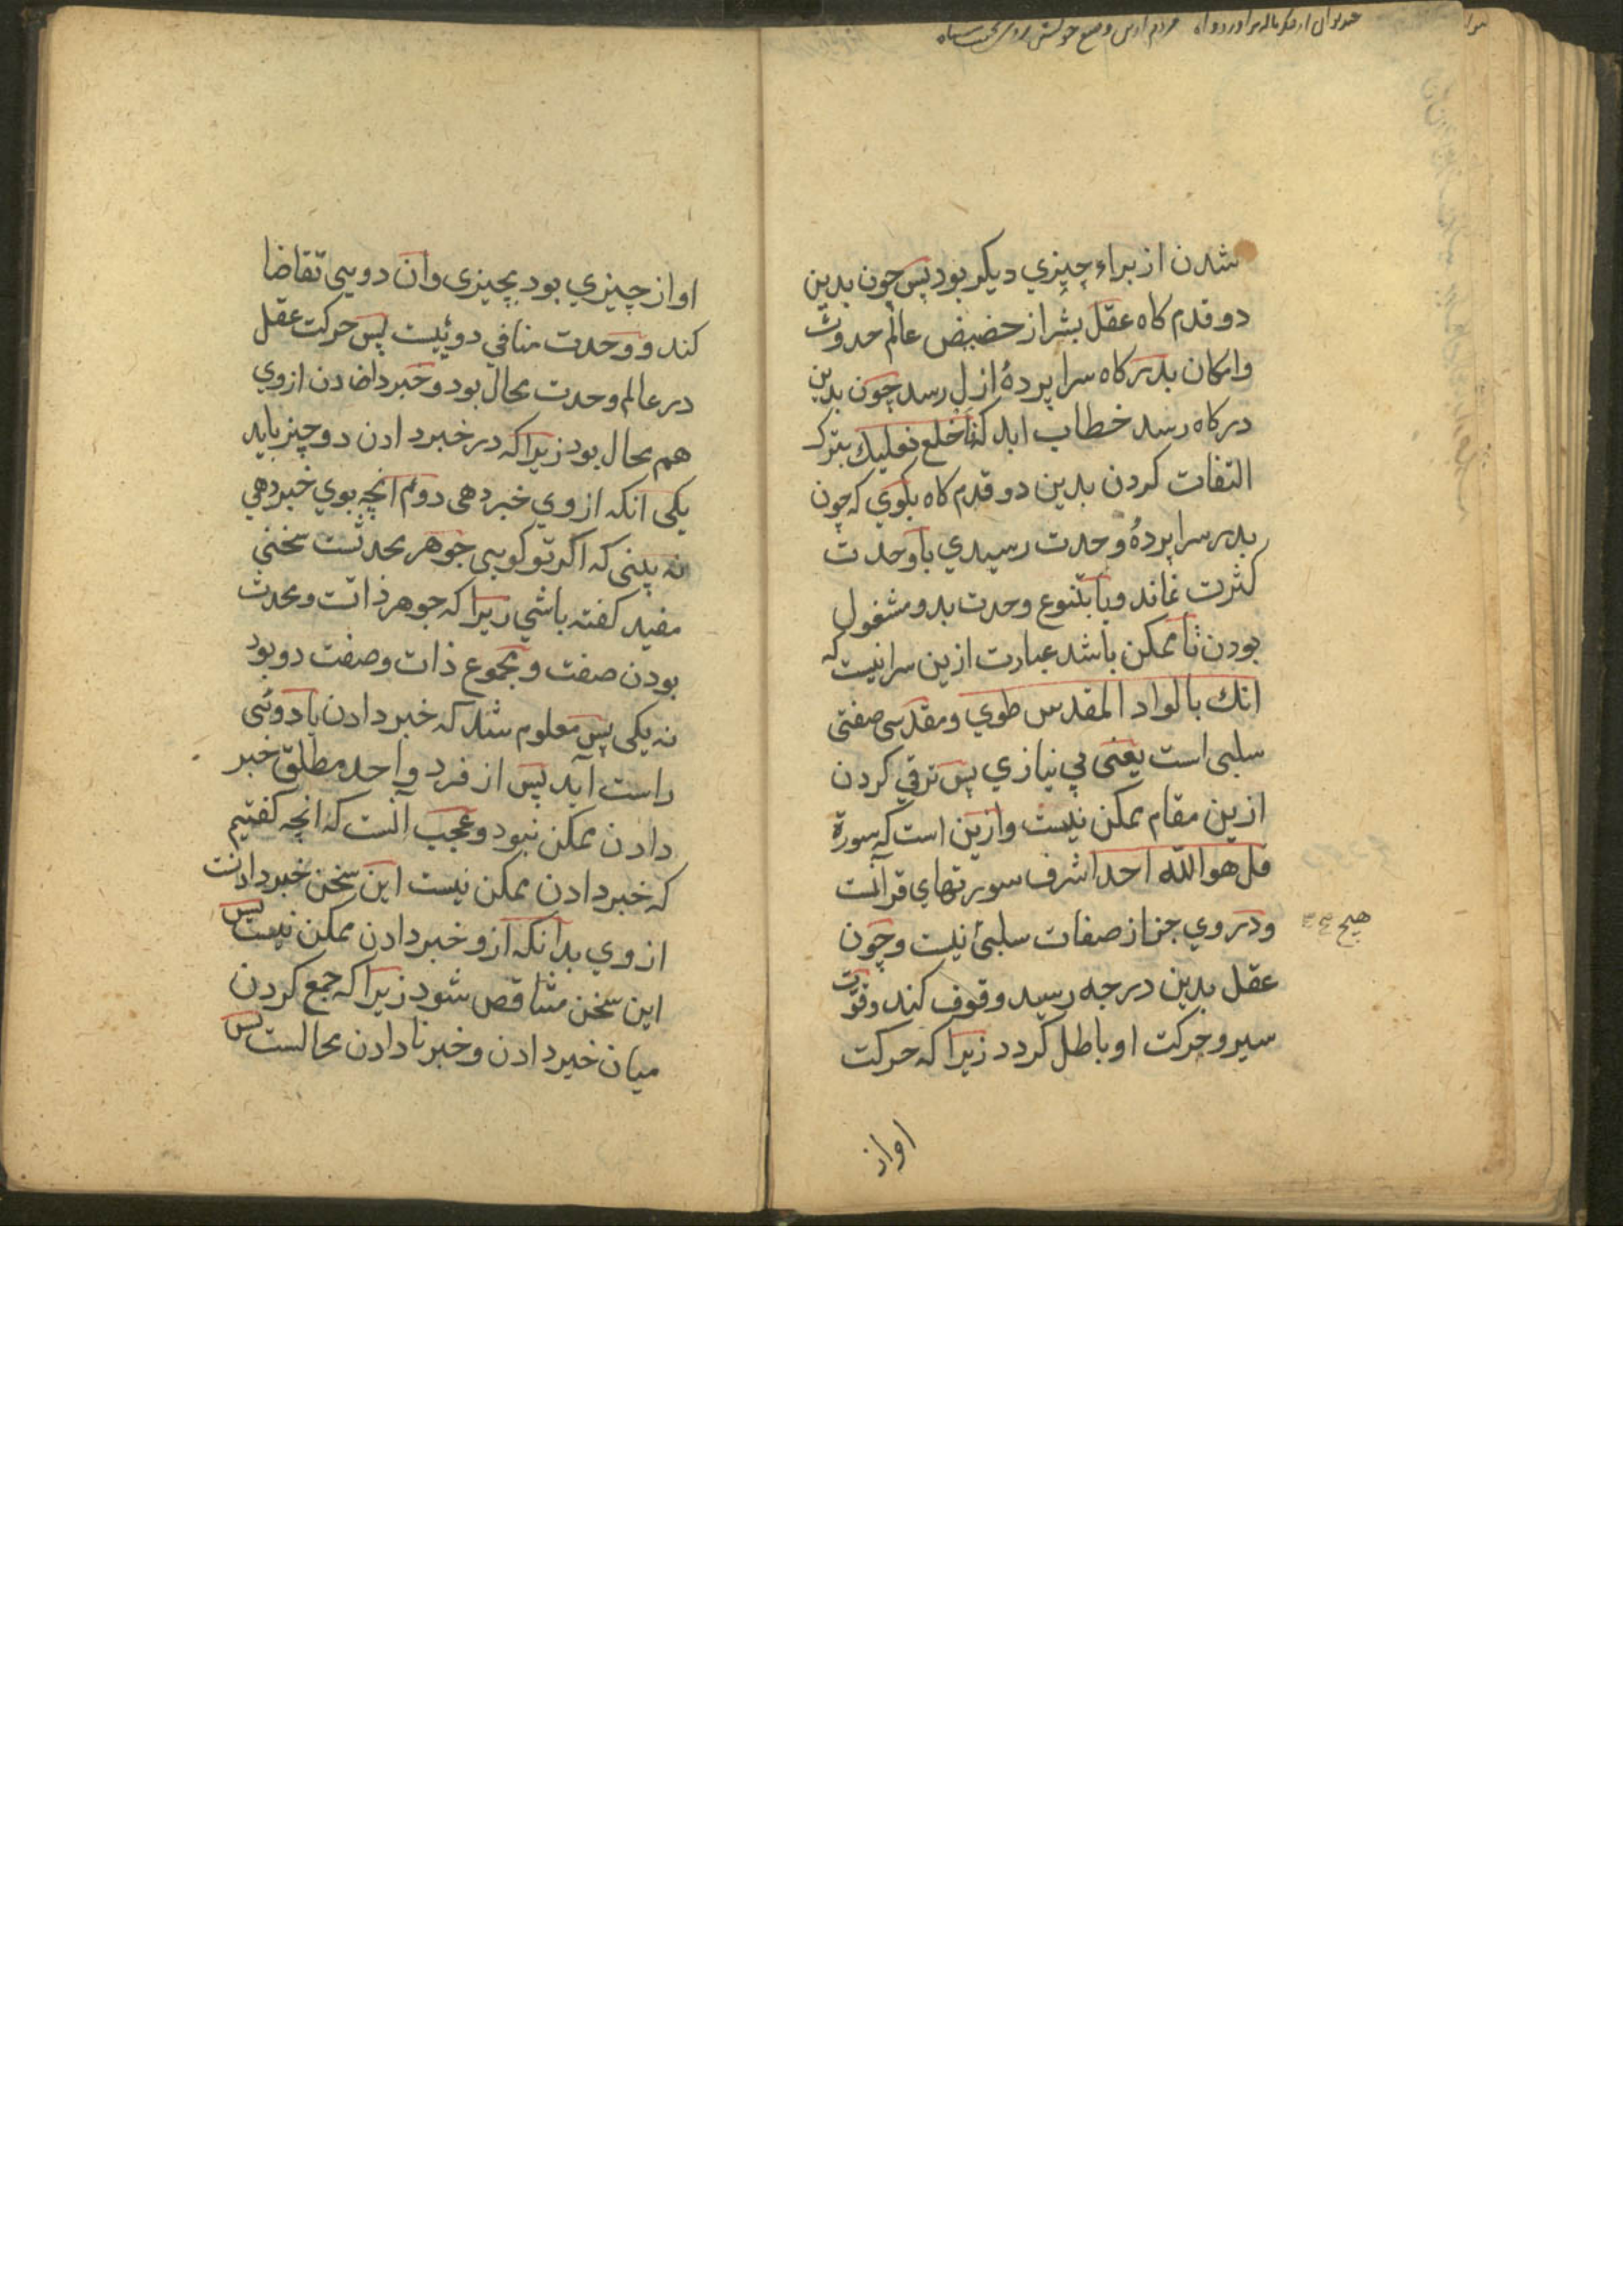 شدن از براء چیزي دیکر بود پس چون بدین
دو قدم کاه عقل بشر از حضیض عالم حدوث
وامکان بدرکاه سرا پردهٔ ازل رسد چون بدین
درکاه رسد خطاب اید که فاخلع نعلیك بترک
التفات کردن بدین دو قدم کاه بکوي که چون
بدر سرا پردهٔ وحدت رسیدي با وحدت
کثرت نماند وبا تنوع وحدت بدو مشغول
بودن نا ممکن باشد عبارت ازین سر اینست که
انك بالواد المقدس طوي ومقدسی صفتی
سلبی است یعنی بی نیازي پس ترقي کردن
ازین مقام ممکن نیست وازین است که سورة
قل هو الله احد اشرف سورتهاي قرآنست
ودر وي جز از صفات سلبئ نیست وچون
هیچ
عقل بدین درجه رسید وقوف کند وقوت
سیر وحرکت او باطل کردد زیرا که حرکت
اواز
اواز چیزي بود بچیزی وان دویی تقاضا
کند ووحدت منافي دوئیست پس حرکت عقل
در عالم وحدت محال بود وخبر دادن ازوي
هم محال بود زیرا که در خبر دادن دو چیز باید
یکی انکه از وي خبر دهی دوم انچه بوي خبر دهي
نه بینی که اکر تو کویی جوهر محدثست سخنی
مفید کفته باشي زیرا که جوهر ذاتست ومحدث
بودن صفت ومجموع ذات وصفت دو بود
نه یکی پس معلوم شد که خبر دادن با دوئی
راست آید پس از فرد واحد مطلق خبر
دادن ممکن نبود وعجب آنست که انچه کفتیم
که خبر دادن ممکن نیست این سخن خبر دادنست
از وي بدانکه ازو خبر دادن ممکن نیست پس
این سخن متناقض شود زیرا که جمع کردن
میان خبر دادن وخبر نا دادن محالست پس